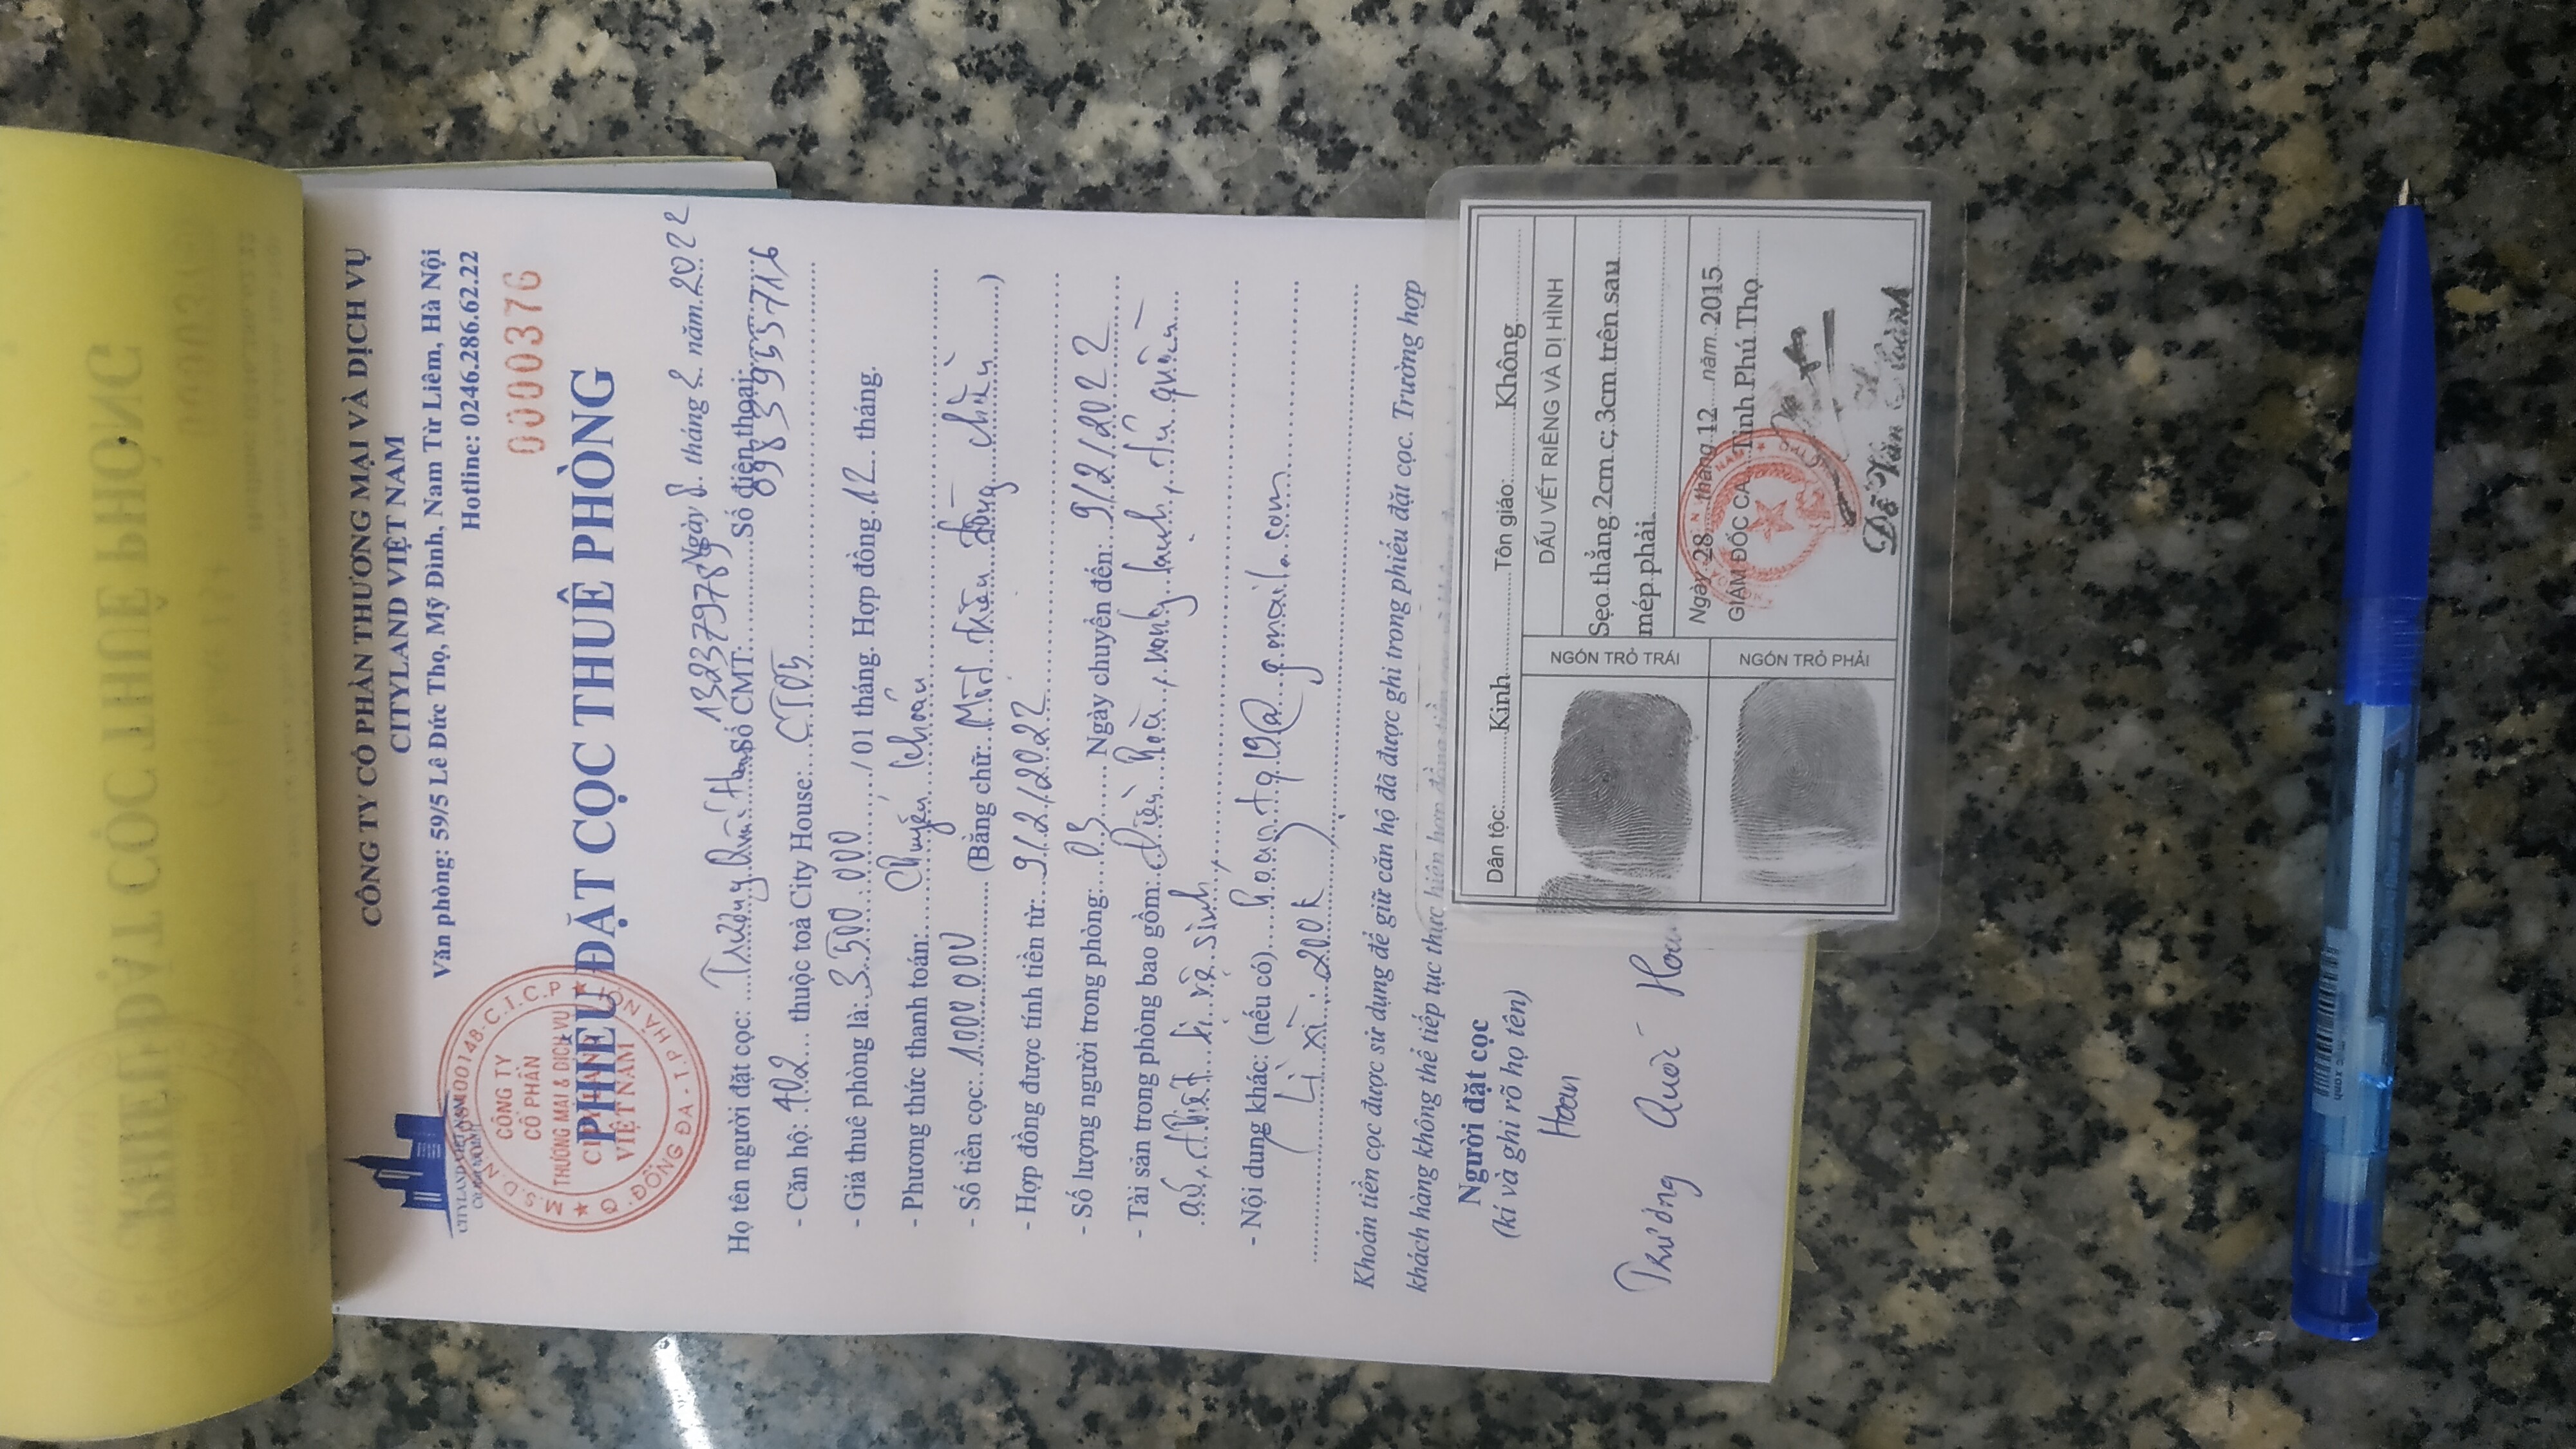 CÔNG TY CỔ PHẦN THƯƠNG MẠI VÀ DỊCH VỤ
CITYLAND VIỆT NAM
Văn phòng: 59/5 Lê Đức Thọ, Mỹ Đình, Nam Từ Liêm, Hà Nội
Hotline: 0246.286.62.22
CÔNG TY
CỔ PHẦN
THƯƠNG MẠI & DỊCH VỤ
VIỆT NAM
Q. ĐỐNG ĐA - T.P HÀ NỘI
0000376
PHIẾU ĐẶT CỌC THUÊ PHÒNG
Ngày 8 tháng 2 năm 2022
Họ tên người đặt cọc: Trương Quốc Hoan Số CMT: 132379789 Số điện thoại: 0983955716
- Căn hộ: 402 thuộc toà City House: CT05
- Giá thuê phòng là: 3500 000 / 01 tháng. Hợp đồng 12 tháng.
- Phương thức thanh toán: Chuyển khoản
- Số tiền cọc: 1000 000 (Bằng chữ: Một triệu đồng chẵn)
- Hợp đồng được tính tiền từ: 9/2/2022
- Số lượng người trong phòng: 03 Ngày chuyển đến: 9/2/2022
- Tài sản trong phòng bao gồm: Điều hoà, nóng lạnh, tủ quần
áo, thiết bị vệ sinh,
- Nội dung khác: (nếu có) hoangtq19@gmail.com
Lì xì: 200k
Khoản tiền cọc được sử dụng để giữ căn hộ đã được ghi trong phiếu đặt cọc. Trường hợp
khách hàng không thể tiếp tục thực hiện hợp đồng
Người đặt cọc
(kí và ghi rõ họ tên)
Hoan
Trương Quốc
Dân tộc: Kinh Tôn giáo: Không
DẤU VẾT RIÊNG VÀ DỊ HÌNH
Sẹo thẳng 2cm c; 3cm trên sau
mép phải
NGÓN TRỎ TRÁI
NGÓN TRỎ PHẢI
Ngày 28 tháng 12 năm 2015
GIÁM ĐỐC CA Tỉnh Phú Thọ